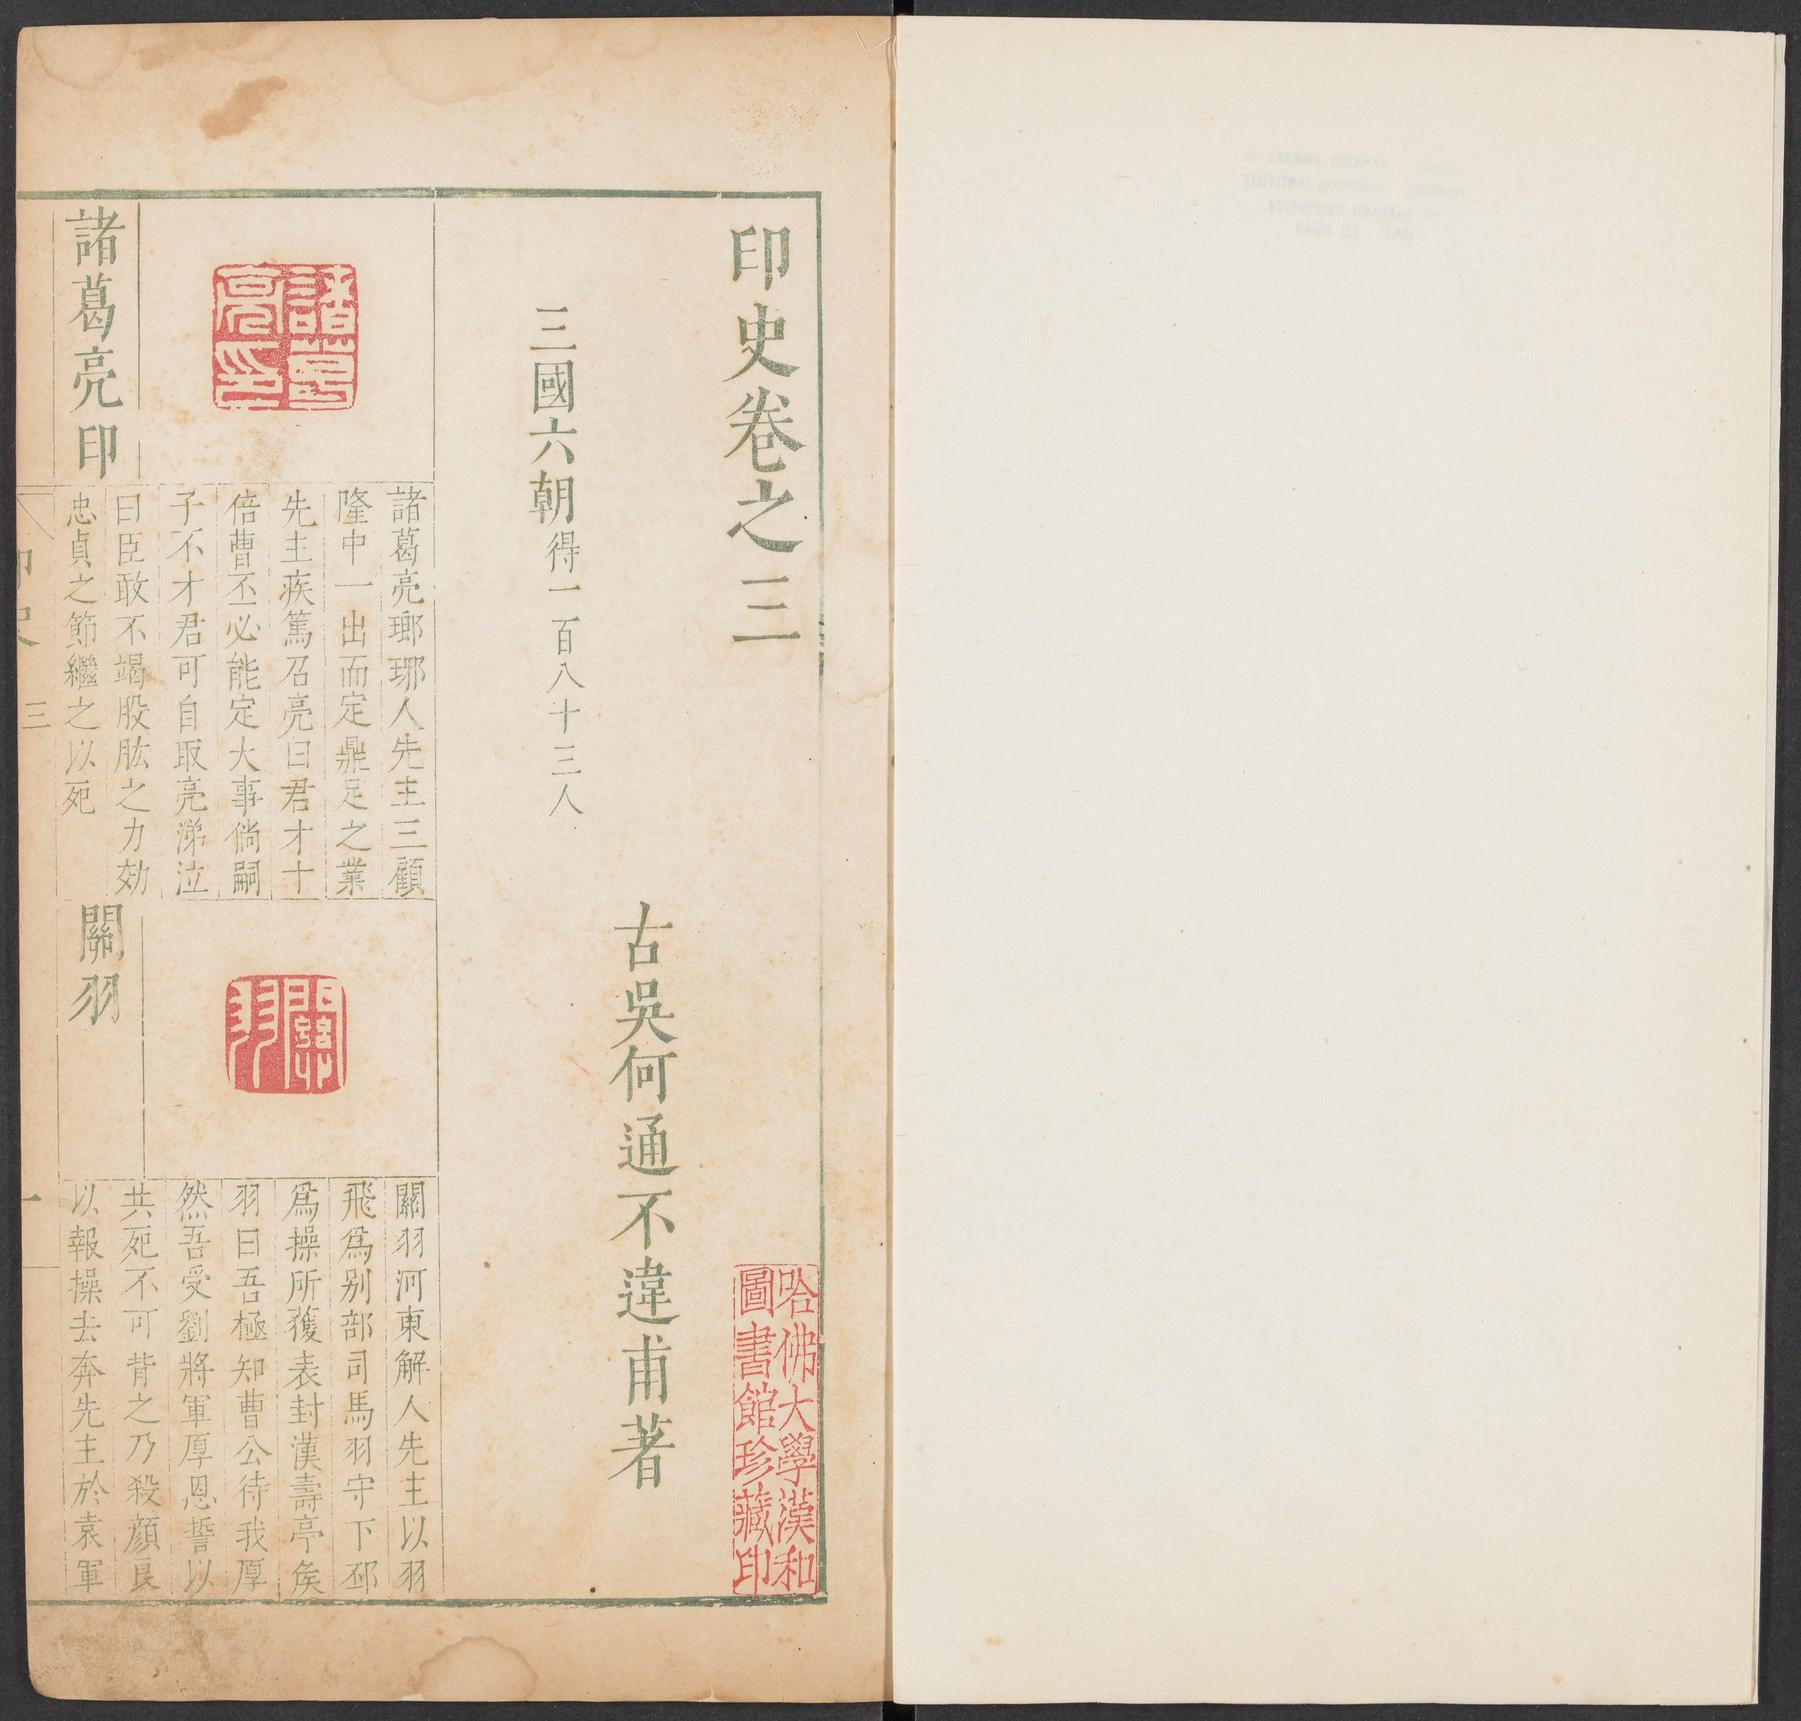 印史卷之三
古吳何通不違甫著
三國六朝得一百八十三人
哈佛大學漢和
圖書館珍藏印
諸葛亮印
諸葛亮印
諸葛亮瑯琊人先主三顧
隆中一出而定鼎足之業
先主疾篤召亮曰君才十
倍曹丕必能定大事倘嗣
子不才君可自取亮涕泣
曰臣敢不竭股肱之力効
忠貞之節繼之以死
關羽
關羽
關羽河東解人先主以羽
飛爲别部司馬羽守下邳
爲操所獲表封漢壽亭侯
羽曰吾極知曹公待我厚
然吾受劉將軍厚恩誓以
共死不可背之乃殺顔良
以報操去奔先主於袁軍
印史
三
一